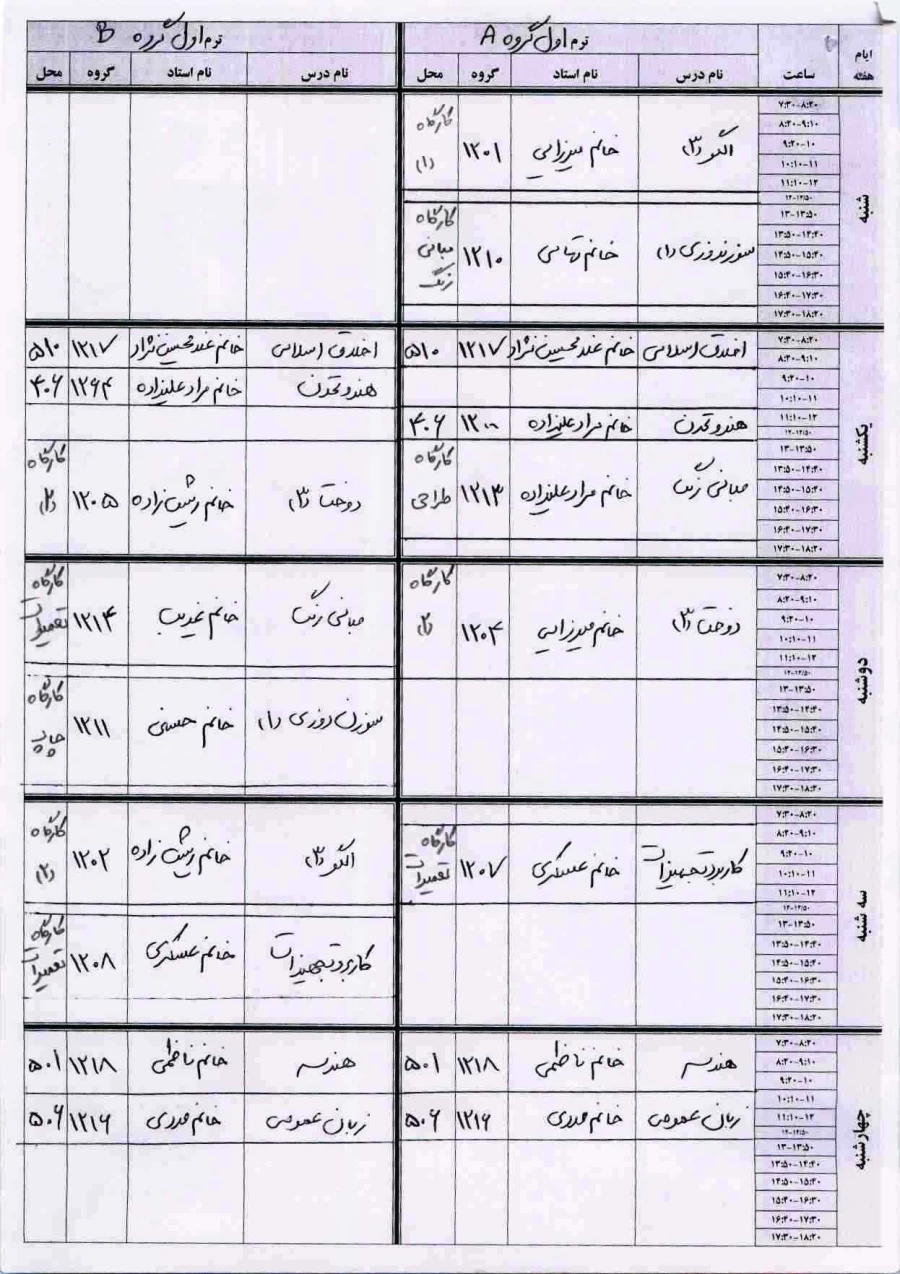 ترم اول گروه A
ترم اول گروه B
ایام هفته ساعت نام درس نام استاد گروه محل نام درس نام استاد گروه محل
شنبه
۷:۳۰-۸:۲۰
۸:۲۰-۹:۱۰
۹:۲۰-۱۰
۱۰:۱۰-۱۱
۱۱:۱۰-۱۲
۱۲-۱۲/۵۰
۱۳-۱۳:۵۰
۱۳:۵۰-۱۴:۴۰
۱۴:۵۰-۱۵:۴۰
۱۵:۴۰-۱۶:۳۰
۱۶:۴۰-۱۷:۳۰
۱۷:۳۰-۱۸:۲۰
الگو (۳) خانم میرزایی ۱۲۰۱ کارگاه (۱)
سوزندوزی (۱) خانم تهامی ۱۲۱۰ کارگاه مبانی رنگ
یکشنبه
۷:۳۰-۸:۲۰
۸:۲۰-۹:۱۰
۹:۲۰-۱۰
۱۰:۱۰-۱۱
۱۱:۱۰-۱۲
۱۲-۱۲/۵۰
۱۳-۱۳:۵۰
۱۳:۵۰-۱۴:۴۰
۱۴:۵۰-۱۵:۴۰
۱۵:۴۰-۱۶:۳۰
۱۶:۴۰-۱۷:۳۰
۱۷:۳۰-۱۸:۲۰
اخلاق اسلامی خانم ۱۲۱۷ ۵۱۰ اخلاق اسلامی خانم ۱۲۱۷ ۵۱۰
هنر و تمدن خانم مراد علیزاده ۱۲۶۴ ۴۰۶
هنر و تمدن خانم مراد علیزاده ۱۲۰۰ ۴۰۶
مبانی رنگ خانم مراد علیزاده ۱۲۱۳ کارگاه طراحی
دوخت (۳) خانم زاده ۱۲۰۵ کارگاه (۲)
دوشنبه
۷:۳۰-۸:۲۰
۸:۲۰-۹:۱۰
۹:۲۰-۱۰
۱۰:۱۰-۱۱
۱۱:۱۰-۱۲
۱۲-۱۲/۵۰
۱۳-۱۳:۵۰
۱۳:۵۰-۱۴:۴۰
۱۴:۵۰-۱۵:۴۰
۱۵:۴۰-۱۶:۳۰
۱۶:۴۰-۱۷:۳۰
۱۷:۳۰-۱۸:۲۰
دوخت (۳) خانم میرزایی ۱۲۰۴ کارگاه
مبانی رنگ خانم غریب ۱۲۱۴ کارگاه تعمیرات
سوزن دوزی (۱) خانم حسنی ۱۲۱۱ کارگاه چاپ
سه شنبه
۷:۳۰-۸:۲۰
۸:۲۰-۹:۱۰
۹:۲۰-۱۰
۱۰:۱۰-۱۱
۱۱:۱۰-۱۲
۱۲-۱۲/۵۰
۱۳-۱۳:۵۰
۱۳:۵۰-۱۴:۴۰
۱۴:۵۰-۱۵:۴۰
۱۵:۴۰-۱۶:۳۰
۱۶:۴۰-۱۷:۳۰
۱۷:۳۰-۱۸:۲۰
کاربرد تجهیزات خانم عسگری ۱۲۰۷ کارگاه تعمیرات
الگو (۳) خانم زاده ۱۲۰۲ کارگاه (۲)
کاربرد تجهیزات خانم عسگری ۱۲۰۸ کارگاه تعمیرات
چهارشنبه
۷:۳۰-۸:۲۰
۸:۲۰-۹:۱۰
۹:۲۰-۱۰
۱۰:۱۰-۱۱
۱۱:۱۰-۱۲
۱۲-۱۲/۵۰
۱۳-۱۳:۵۰
۱۳:۵۰-۱۴:۴۰
۱۴:۵۰-۱۵:۴۰
۱۵:۴۰-۱۶:۳۰
۱۶:۴۰-۱۷:۳۰
۱۷:۳۰-۱۸:۲۰
هندسه خانم ناظمی ۱۲۱۸ ۵۰۱ هندسه خانم ناظمی ۱۲۱۸ ۵۰۱
زبان عمومی خانم ۱۲۱۶ ۵۰۶ زبان عمومی خانم ۱۲۱۶ ۵۰۶